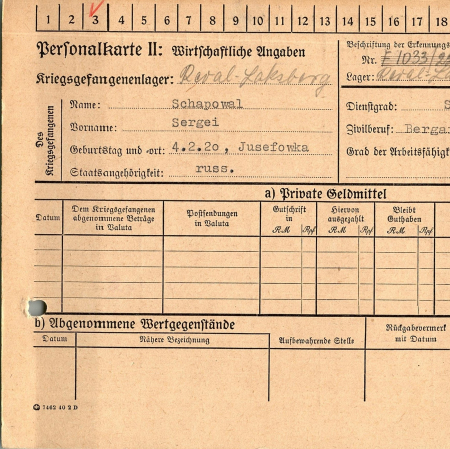 1 2 3 4 5 6 7 8 9 10 11 12 13 14 15 16 17 18
Personalkarte II: Wirtschaftliche Angaben
Beschriftung der Erkennungs
Nr.
Kriegsgefangenenlager: Reval-Laksberg
Lager: Reval-La
Des Kriegsgefangenen
Name: Schapowal
Dienstgrad: S
Vorname: Sergei
Zivilberuf: Berga
Geburtstag und -ort: 4.2.20, Jusefowka
Grad der Arbeitsfähigk
Staatsangehörigkeit: russ.
a) Private Geldmittel
Datum
Dem Kriegsgefangenen abgenommene Beträge in Valuta
Postsendungen in Valuta
Gutschrift in
RM Rpf
Hiervon ausgezahlt
RM Rpf
Bleibt Guthaben
RM Rpf
b) Abgenommene Wertgegenstände
Datum
Nähere Bezeichnung
Aufbewahrende Stelle
Rückgabevermerk mit Datum
7462 40 2 D